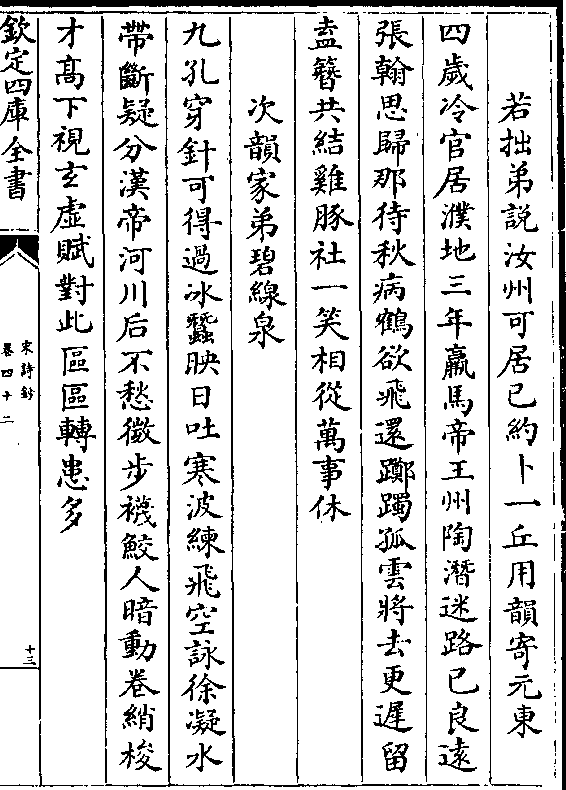 若拙弟說汝州可居已約卜一丘用韻寄元東
四歲冷官居濮地三年羸馬帝王州陶潛迷路已良遠
張翰思歸那待秋病鶴欲飛還躑躅孤雲將去更遲留
盍簪共結雞豚社一笑相從萬事休
次韻家弟碧線泉
九孔穿針可得過冰蠶映日吐寒波練飛空詠徐凝水
帶斷疑分漢帝河川后不愁微步襪鮫人暗動卷綃梭
才髙下視玄虛賦對此區區轉患多
欽定四庫全書
宋詩鈔
卷四十二
十三